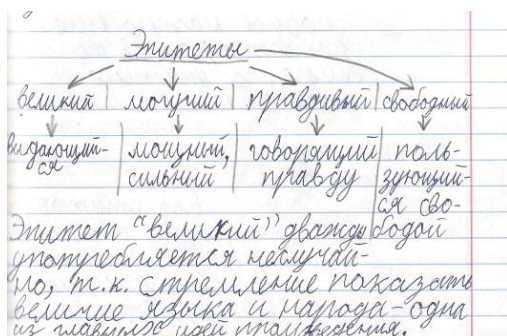 Эпитеты
великий | могучий | правдивый | свободный
выдающий- | мощный, | говорящий | поль-
ся | сильный | правду | зующий-
ся сво-
Эпитет "великий" дважды бодой
употребляется неслучай-
но, т.к. стремление показать
величие языка и народа - одна
из главных идей произведения.